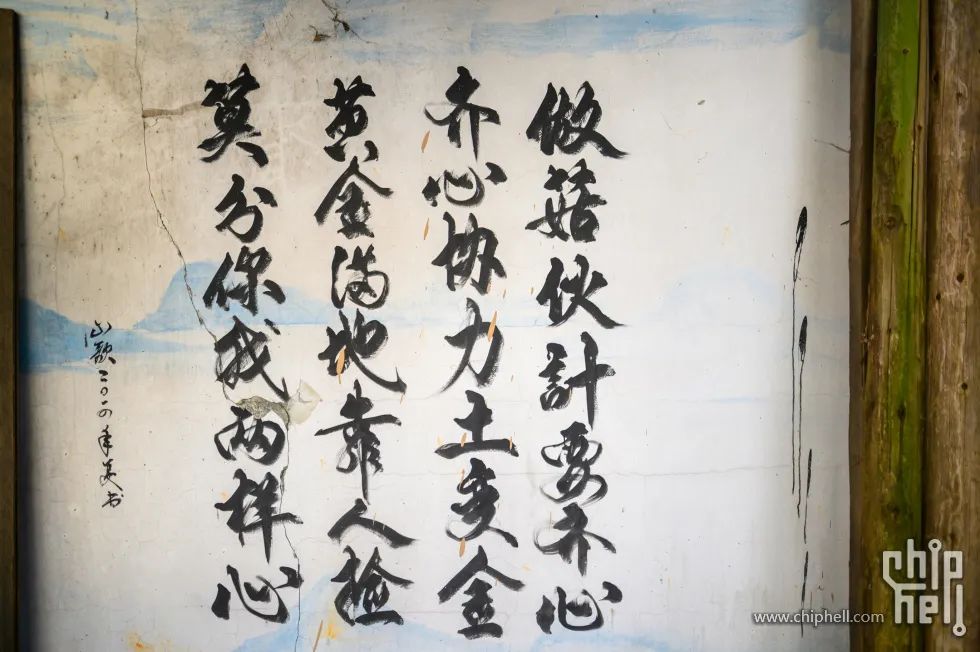 做菇伙計要齐心
齐心协力土变金
黄金满地靠人捡
莫分你我两样心
山歌二〇一四年夏书
www.chiphell.com
chip hell